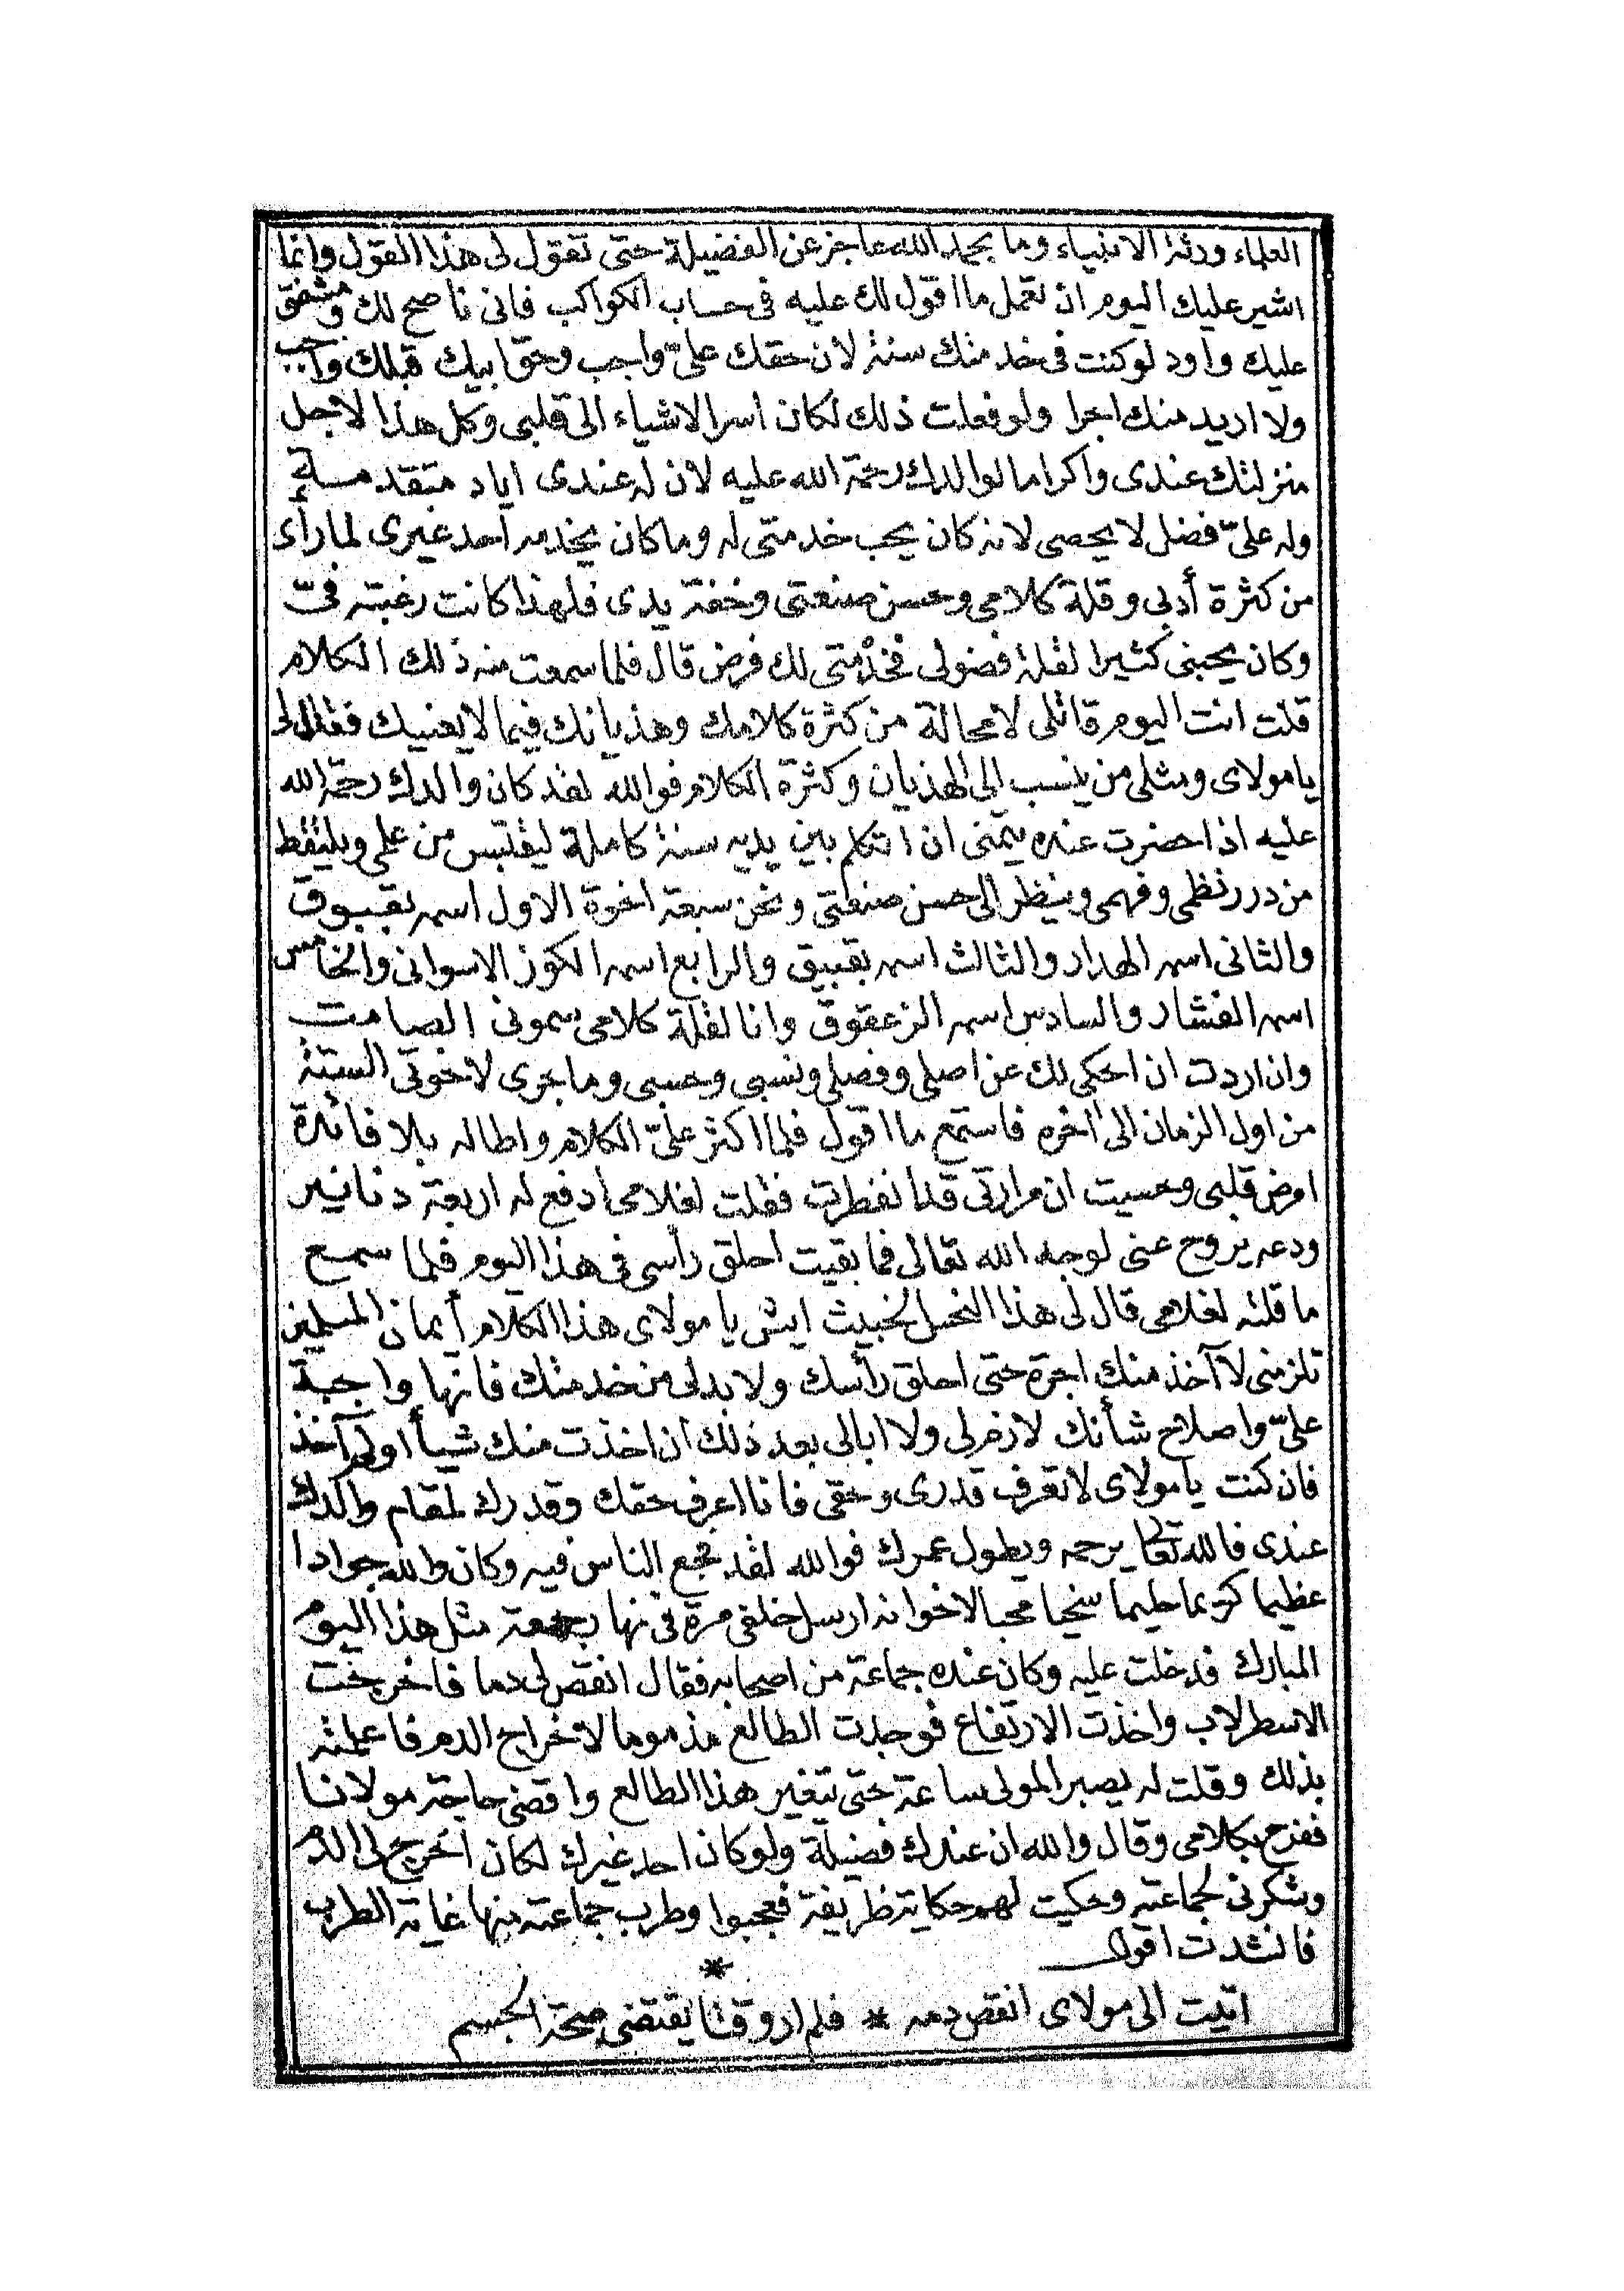 العلماء ورثة الانبياء وما بحمد الله عاجز عن الفضيلة حتى تقول لى هذا القول وانما
اشير عليك اليوم ان تعمل ما اقول لك عليه فى حساب الكواكب فانى ناصح لك ومشفق
عليك واود لو كنت فى خدمتك سنة لان حقك علىّ واجب وحق ابيك قبلك واجب
ولا اريد منك اجرا ولو فعلت ذلك لكان اسر الاشياء الى قلبى وكل هذا لاجل
منزلتك عندى واكراما لوالدك رحمة الله عليه لان له عندى اياد متقدمة
وله علىّ فضل لا يحصى لانه كان يحب خدمتى له وما كان يخدمه احد غيرى لما رأى
من كثرة أدبى وقلة كلامى وحسن صنعتى وخفة يدى فلهذا كانت رغبته فىّ
وكان يحبنى كثيرا لقلة فضولى فخدمتى لك فرض قال فلما سمعت منه ذلك الكلام
قلت انت اليوم قاتلى لا محالة من كثرة كلامك وهذيانك فيما لا يعنيك فقال لى
يا مولاى ومثلى من ينسب الى الهذيان وكثرة الكلام فوالله لقد كان والدك رحمة الله
عليه اذا حضرت عنده يتمنى ان اتكلم بين يديه سنة كاملة ليقتبس من علمى ويلتقط
من درر نظمى وفهمى وينظر الى حسن صنعتى ونحن سبعة اخوة الاول اسمه بقبوق
والثانى اسمه الهدار والثالث اسمه بقبيق والرابع اسمه الكوز الاسوانى والخامس
اسمه الفشار والسادس اسمه الزعقوق وانا لقلة كلامى سمونى الصامت
وان اردت ان احكى لك عن اصلى وفصلى ونسبى وحسبى وما جرى لاخوتى الستة
من اول الزمان الى اخره فاستمع ما اقول فلما اكثر علىّ الكلام واطاله بلا فائدة
امرض قلبى وحسيت ان مرارتى قد انفطرت فقلت لغلامى ادفع له اربعة دنانير
ودعه يروح عنى لوجه الله تعالى فما بقيت احلق رأسى فى هذا اليوم فلما سمع
ما قلته لغلامى قال لى هذا النحس الخبيث ايش يا مولاى هذا الكلام أيمان المسلمين
تلزمنى لا آخذ منك اجرة حتى احلق رأسك ولا بد لى من خدمتك فانها واجبة
علىّ واصلاح شأنك لازم لى ولا ابالى بعد ذلك ان اخذت منك شيأ اولم آخذ
فان كنت يا مولاى لا تعرف قدرى وحقى فانا اعرف حقك وقدرك لمقام والدك
عندى فالله تعالى يرحمه ويطول عمرك فوالله لقد فجع الناس فيه وكان والله جوادا
عظيما كريما حليما سخيا محبا لاخوانه ارسل خلفى مرة فى نهار جمعة مثل هذا اليوم
المبارك فدخلت عليه وكان عنده جماعة من اصحابه فقال انقص لى دما فاخرجت
الاسطرلاب واخذت الارتفاع فوجدت الطالع مذموما لاخراج الدم فاعلمته
بذلك وقلت له يصبر المولى ساعة حتى يتغير هذا الطالع واقضى حاجة مولانا
ففرح بكلامى وقال والله ان عندك فضيلة ولو كان احد غيرك لكان اخرج لى الدم
وشكرنى لجماعته وحكيت لهم حكاية ظريفة فعجبوا وطرب جماعته منها غاية الطرب
فانشدت اقول
*
اتيت الى مولاى انقص دمه * فلم ار وقتا يقتضى صحة الجسم